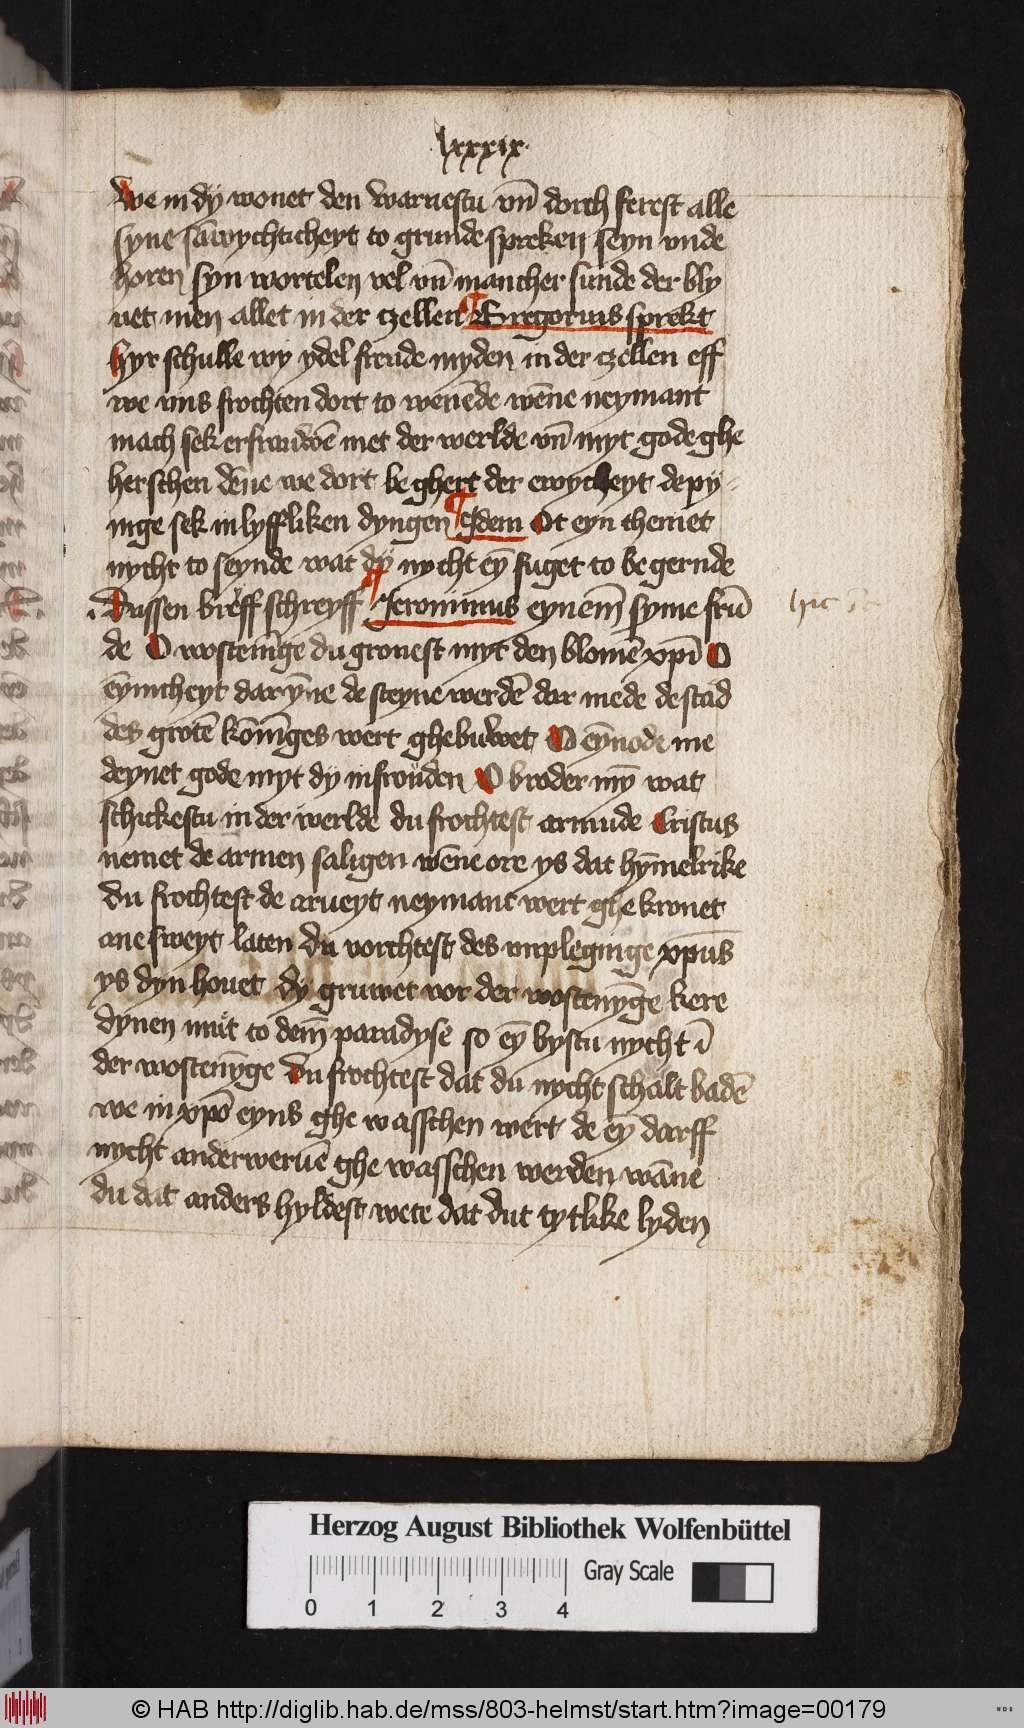 lxxxix
We in dy wonet den warnestu vn̄ dorch ferest alle
syne sāwychticheyt to grunde spreken seyn vnde
horen syn wortelen vel vn̄ mancher sunde der bly
uet men allet in der czellen ¶ Gregorius sprekt
hyr schulle wy ydel freude myden in der czellen eff
we vns frochten dort to wenēde wēne neymant
mach sek erfrauwē met der werlde vn̄ myt gode ghe
herschen dēne we dort be ghert der ewycheyt de py
nige sek in lyffliken dyngen ¶ Idem Ot eyn themet
nycht to seynde wat dy nycht eȳ fuget to be gernde
Dussen breff schreyff ¶ Jeronimus eynem̄ syme frū
hic
de O wosteniḡe du gronest myt den blomē xp̄i O
ēynicheyt dar ȳne de steyne werdē dar mede de stad
des grotē kōnīges wert ghebuwet O eȳnode me
deynet gode myt dy in frouden O broder mȳ wat
schickestu in der werlde du frochtest armude Cristus
nemet de armen saligen wēne ore ys dat hȳmelrike
du frochtest de arueyt neymant wert ghe kronet
ane sweyt laten du vorchtest des vnplegnige xp̄us
ys dyn houet dy gruwet vor der wostenyḡe kere
dynen mut to dem̄ paradyse so eȳ bystu nycht ī
der wostenȳge du frochtest dat du nycht schalt badē
we in xp̄o eyns ghe wasschen wert de ey darff
nycht anderweruē ghe wasschen werden wāne
du dat anders hyldest wete dat dut tytlike lyden
Herzog August Bibliothek Wolfenbüttel
Gray Scale
0 1 2 3 4
© HAB http://diglib.hab.de/mss/803-helmst/start.htm?image=00179